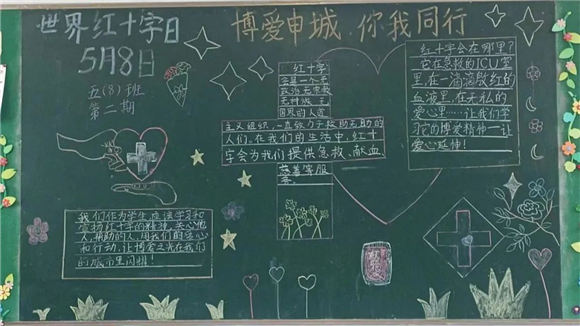 世界红十字日
5月8日
五(8)班
第二期
博爱申城,你我同行
红十字
会是一个
无种族
主义组织,一直致力于救助无助的
人们。在我们的生活中,红十
字会为我们提供急救、献血
红十字会在哪里?
它在急救的ICU室
里,在一滴滴殷红的
血液里,在无私的
爱心里……让我们学
习它的博爱精神——让
爱心延伸!
我们作为学生,应该学习和
宣扬红十字的精神,关心他
人,帮助的人,用我们的爱心
和行动,让博爱之光在我们
的城市里闪耀!